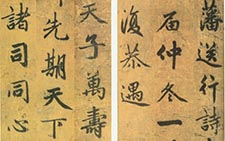 藩送行詩
届仲冬一
復恭遇
天子萬壽
先期天下
諸司同心